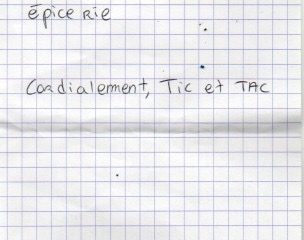 épicerie
Cordialement, Tic et TAC